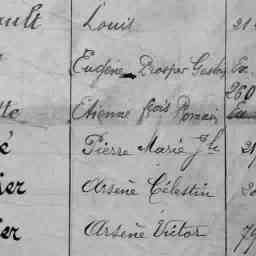 ault Louis 21
Eugène Prosper Ex.
260
tte Etienne frois Romain Ex
é Pierre Marie Jh 21
er Arsène Célestin 2
er Arsène Victor 79